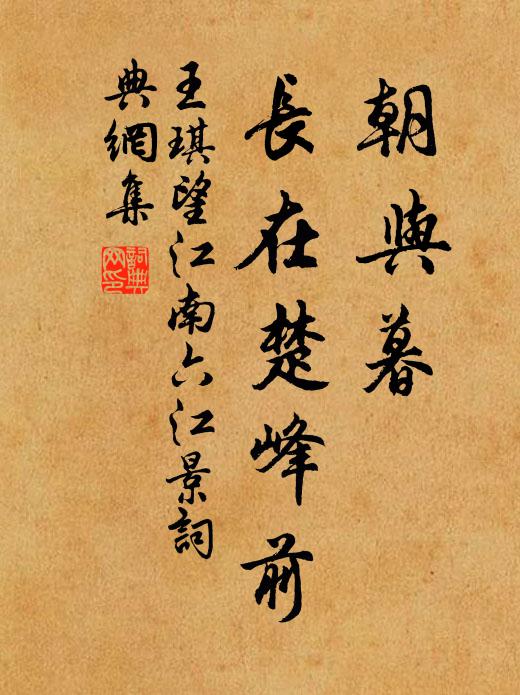 朝與暮
長在楚峰前
王琪望江南六江景詞
典網集
詞典
網印